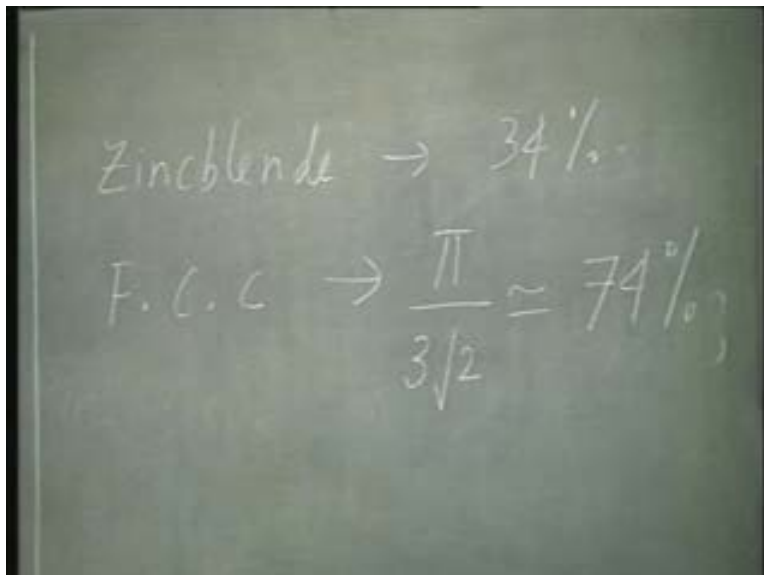 Zincblende → 34%
F.C.C → π/3√2 ≃ 74%,